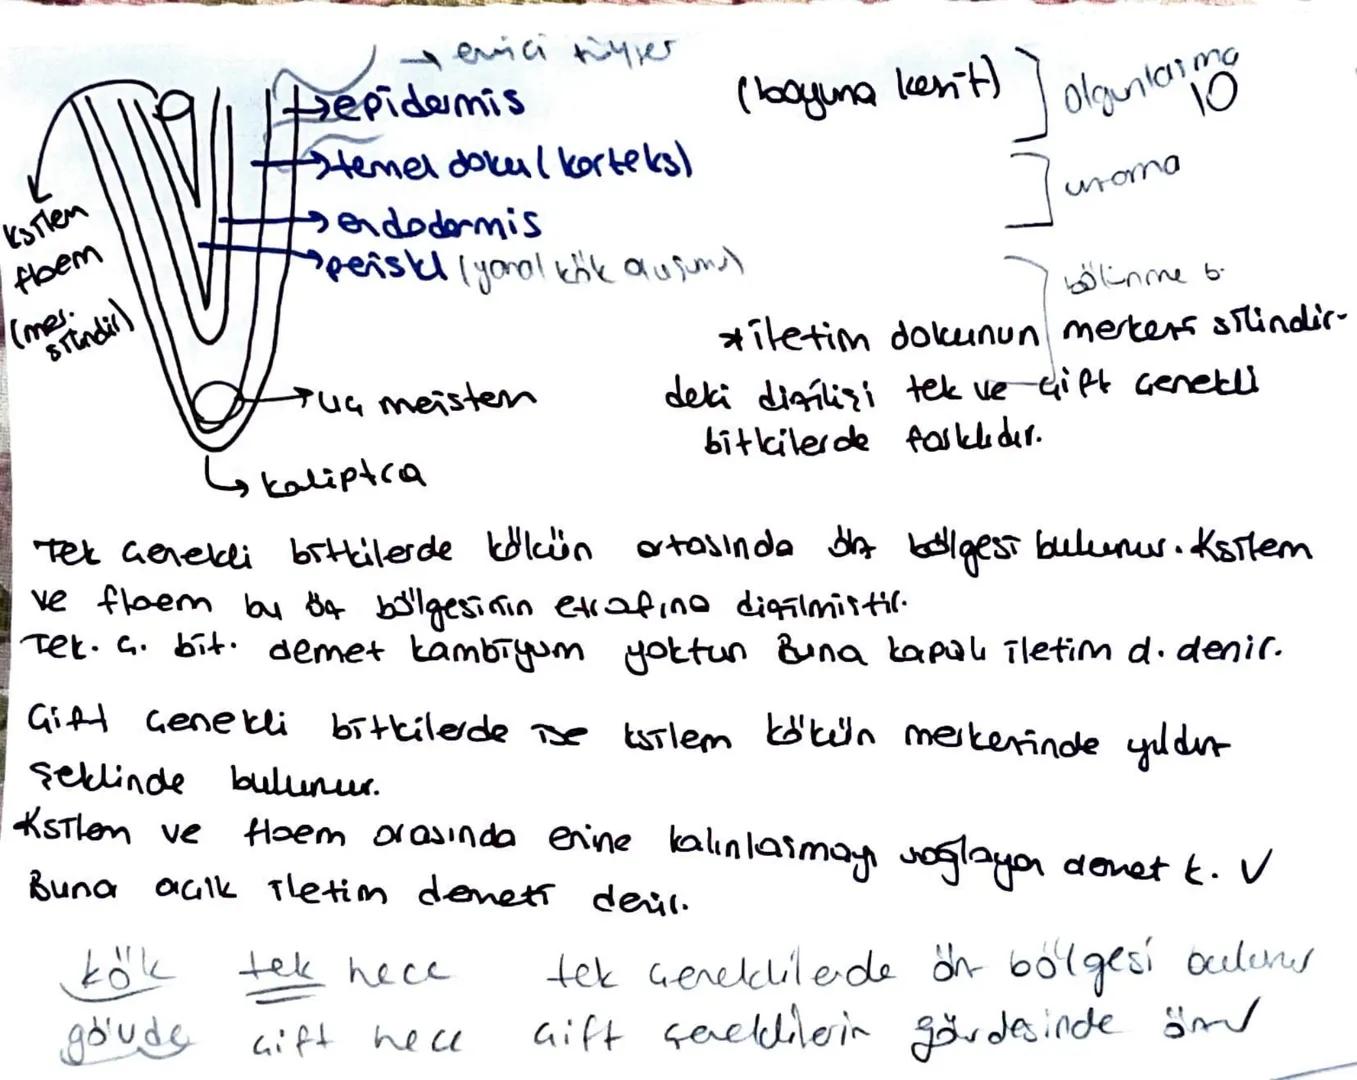 → emici tüyler
→ epidermis
(boyuna kesit)
olgunlaşma
10
→ temel doku (korteks)
uzama
→ endodermis
→ periskl (yanal kök oluşumu)
bölünme b.
ksilem
floem
(mer. silindir)
* iletim dokunun merkezi silindir-
deki dizilişi tek ve çift çenekli
bitkilerde farklıdır.
→ uç meristem
→ kaliptra
Tek çenekli bitkilerde kökün ortasında öz bölgesi bulunur. Ksilem
ve floem bu öz bölgesinin etrafına dizilmiştir.
Tek. ç. bit. demet kambiyum yoktur. Buna kapalı iletim d. denir.
Çift çenekli bitkilerde ise ksilem kökün merkezinde yıldız
şeklinde bulunur.
Ksilem ve floem arasında enine kalınlaşmayı sağlayan demet k. V
Buna açık iletim demeti denir.
kök tek hece tek çeneklilerde öz bölgesi bulunur
gövde çift hece çift çeneklilerin gövdesinde öz V